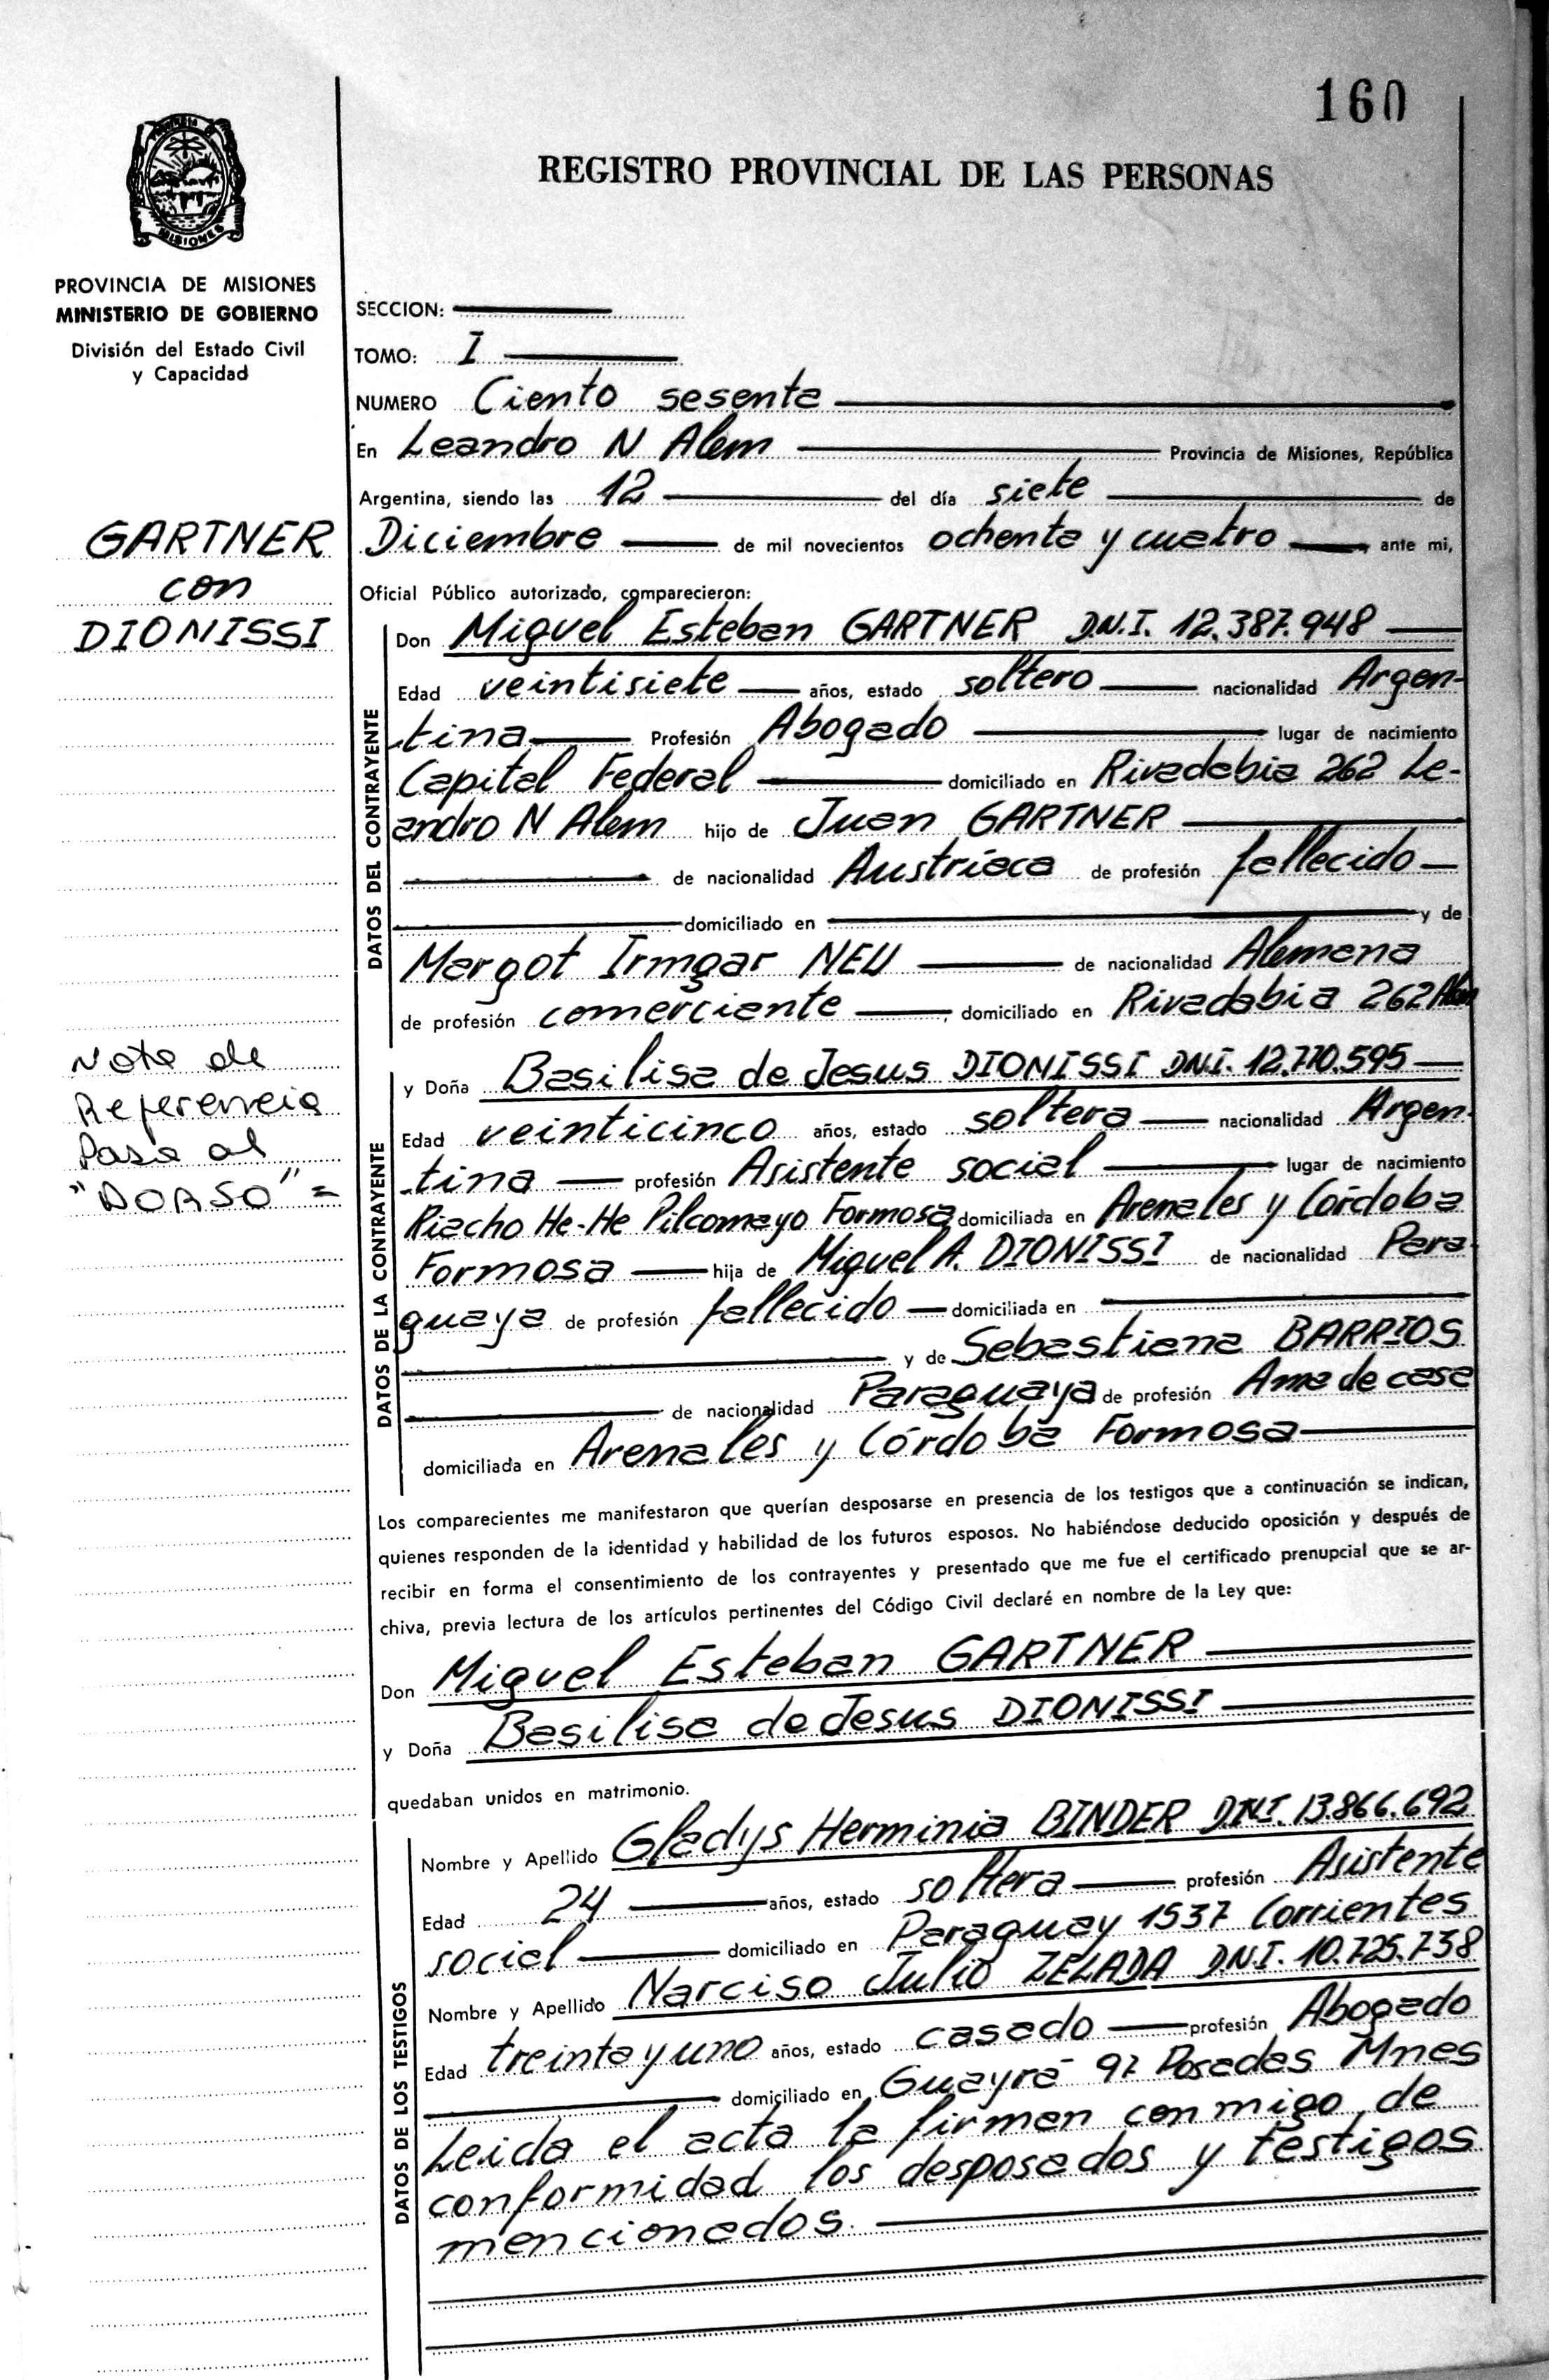 160
REGISTRO PROVINCIAL DE LAS PERSONAS
PROVINCIA DE MISIONES
MINISTERIO DE GOBIERNO
División del Estado Civil
y Capacidad
SECCION:
TOMO: I
NUMERO Ciento sesenta
En Leandro N Alem Provincia de Misiones, República
Argentina, siendo las 12 del día siete de
GARTNER
con
DIONISSI
Diciembre de mil novecientos ochenta y cuatro ante mi,
Oficial Público autorizado, comparecieron:
DATOS DEL CONTRAYENTE
Don Miguel Esteban GARTNER D.N.I. 12.387.948
Edad veintisiete años, estado soltero nacionalidad Argen-
tina Profesión Abogado lugar de nacimiento
Capital Federal domiciliado en Rivadabia 262 Le-
andro N Alem hijo de Juan GARTNER
de nacionalidad Austríaca de profesión fallecido
domiciliado en y de
Margot Irmgar NEU de nacionalidad Alemana
de profesión comerciante, domiciliado en Rivadabia 262 Alem
Nota de
Referencia
Pasa al
"DORSO" =
DATOS DE LA CONTRAYENTE
y Doña Basilisa de Jesus DIONISSI DNI. 12.770.595
Edad veinticinco años, estado soltera nacionalidad Argen-
tina profesión Asistente social lugar de nacimiento
Riacho He-He Pilcomayo Formosa domiciliada en Arenales y Córdoba
Formosa hija de Miguel A. DIONISSI de nacionalidad Para-
guaya de profesión fallecido domiciliada en
y de Sebastiana BARRIOS
de nacionalidad Paraguaya de profesión Ama de casa
domiciliada en Arenales y Córdoba Formosa
Los comparecientes me manifestaron que querían desposarse en presencia de los testigos que a continuación se indican,
quienes responden de la identidad y habilidad de los futuros esposos. No habiéndose deducido oposición y después de
recibir en forma el consentimiento de los contrayentes y presentado que me fue el certificado prenupcial que se ar-
chiva, previa lectura de los artículos pertinentes del Código Civil declaré en nombre de la Ley que:
Don Miguel Esteban GARTNER
y Doña Basilisa de Jesus DIONISSI
quedaban unidos en matrimonio.
DATOS DE LOS TESTIGOS
Nombre y Apellido Gladys Herminia BINDER D.N.I. 13.866.692
Edad 24 años, estado soltera profesión Asistente
social domiciliado en Paraguay 1537 Corrientes
Nombre y Apellido Narciso Julio ZELADA D.N.I. 10.725.738
Edad treinta y uno años, estado casado profesión Abogado
domiciliado en Guayrá 97 Posadas Mnes
Leida el acta la firman conmigo de
conformidad los desposados y testigos
mencionados.